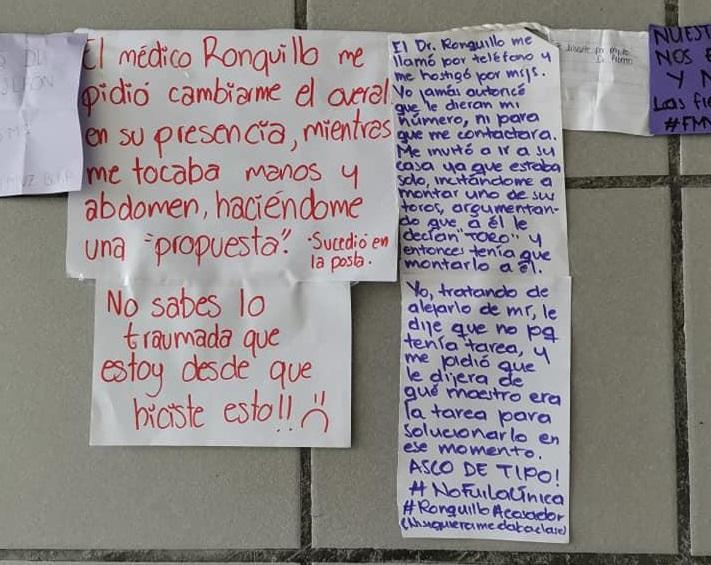 El médico Ronquillo me
pidió cambiarme el overal
en su presencia, mientras
me tocaba manos y
abdomen, haciéndome
una "propuesta".
·Sucedió en
la posta.
No sabes lo
traumada que
estoy desde que
hiciste esto!! :(
El Dr. Ronquillo me
llamó por teléfono y
me hostigó por msjs.
Yo jamás autoricé
que le dieran mi
número, ni para
que me contactara.
Me invitó a ir a su
casa ya que estaba
solo, incitándome a
montar uno de sus
toros, argumentan-
do que, a él le
decían "TORO" y
entonces tenía que
montarlo a él.
Yo, tratando de
alejarlo de mí, le
dije que no pq
tenía tarea, y
me pidió que
le dijera de
qué maestro era
la tarea para
solucionarlo en
ese momento.
ASCO DE TIPO!
#NoFuiLaÚnica
#RonquilloAcosador
(Ni siquiera me daba clase)
NUEST
NOS E
Y N
Las fie
#FMV